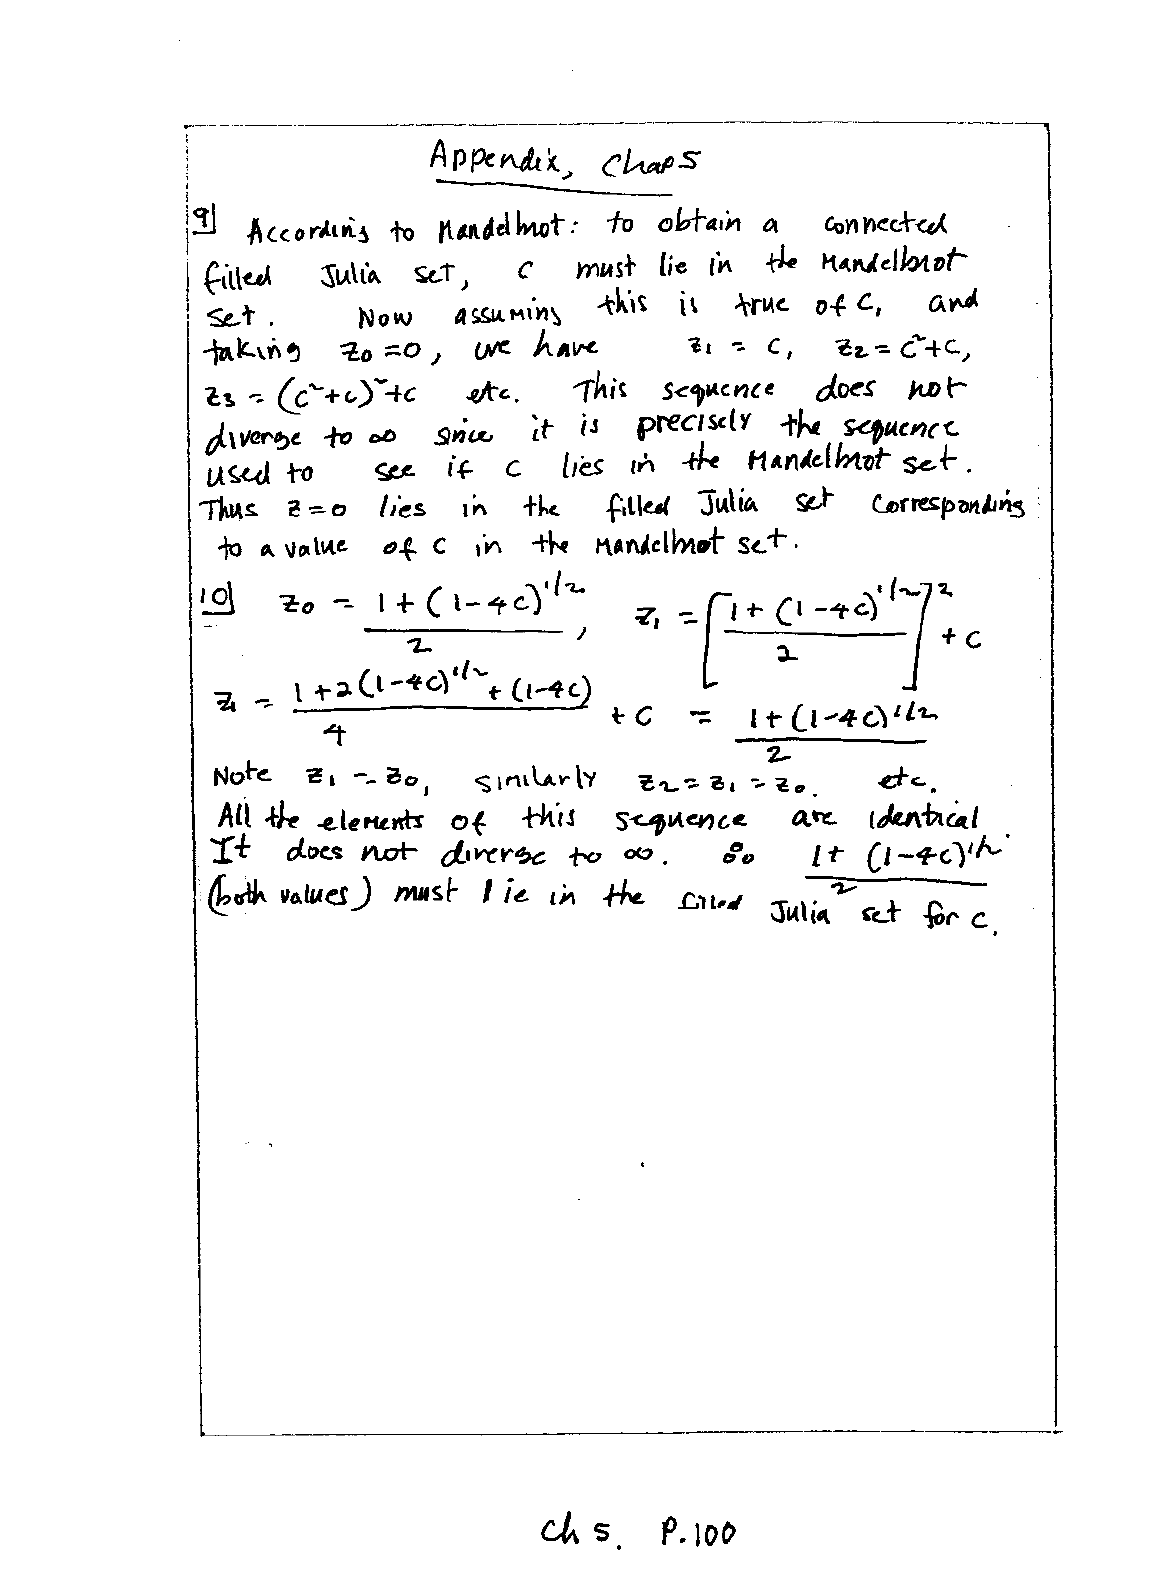 Appendix, Chaos
9] According to Mandelbrot: to obtain a connected
filled Julia set, c must lie in the Mandelbrot
set. Now assuming this is true of c, and
taking z₀ = 0, we have z₁ = c, z₂ = c²+c,
z₃ = (c²+c)²+c etc. This sequence does not
diverge to ∞ since it is precisely the sequence
used to see if c lies in the Mandelbrot set.
Thus z=0 lies in the filled Julia set corresponding
to a value of c in the Mandelbrot set.
10] z₀ = (1+(1-4c)^1/2)/2, z₁ = [(1+(1-4c)^1/2)/2]² + c
z₁ = (1+2(1-4c)^1/2+(1-4c))/4 + c = (1+(1-4c)^1/2)/2
Note z₁ = z₀, similarly z₂ = z₁ = z₀. etc.
All the elements of this sequence are identical.
It does not diverge to ∞. So (1+(1-4c)^1/2)/2
(both values) must lie in the filled Julia set for c.
Ch 5. P.100